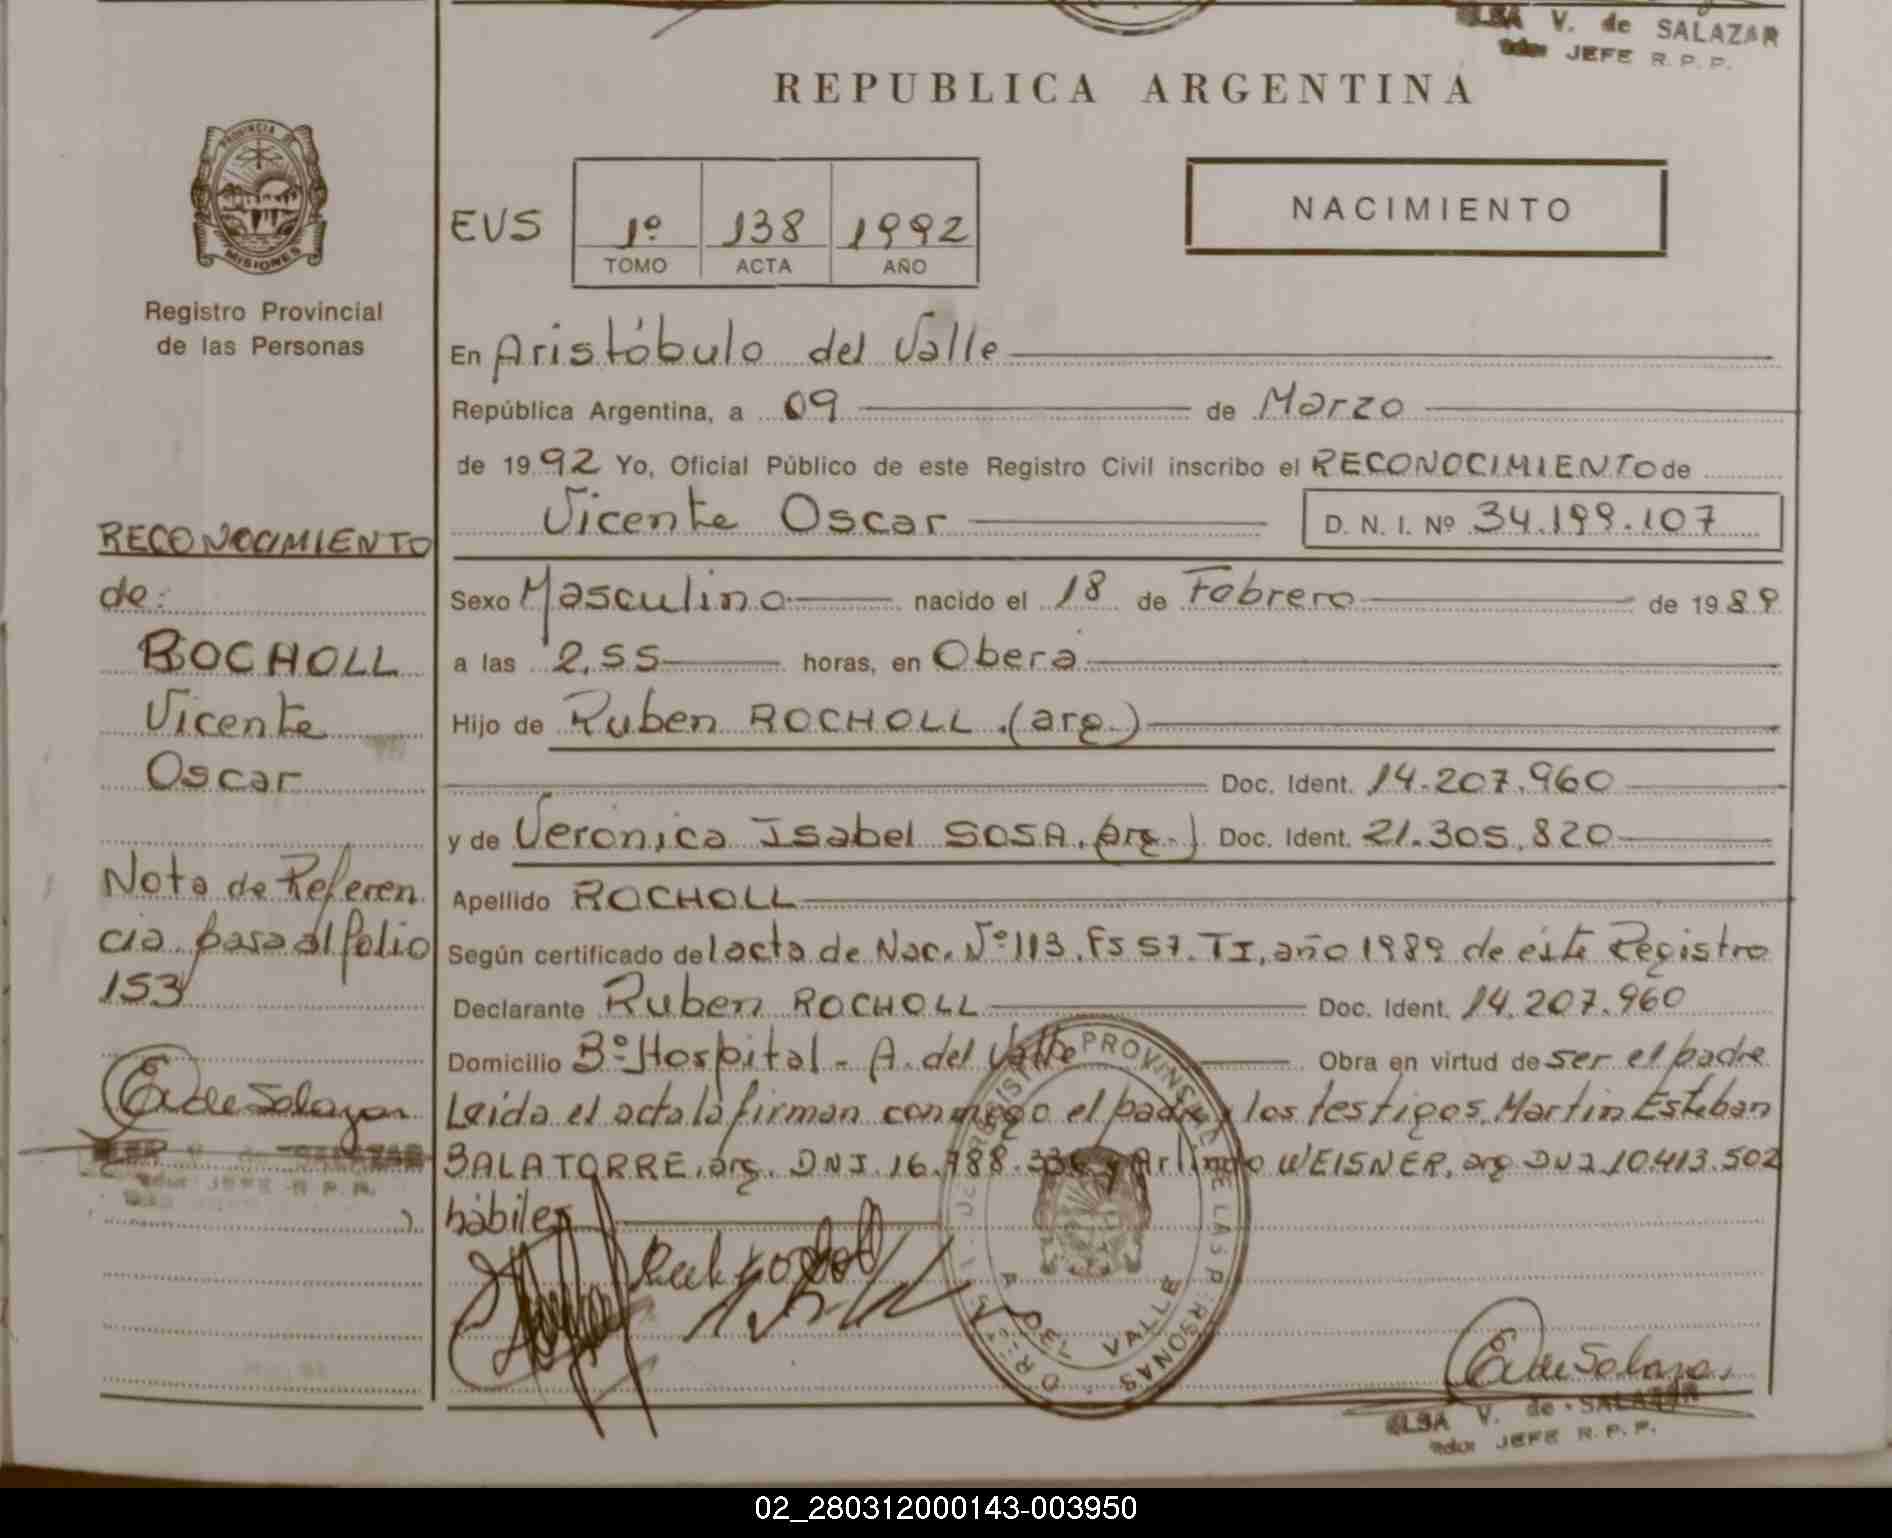 ELSA V. de SALAZAR
JEFE R. P. P.
REPUBLICA ARGENTINA
PROVINCIA DE
MISIONES
Registro Provincial
de las Personas
EVS
1º 138 1992
TOMO ACTA AÑO
NACIMIENTO
En Aristóbulo del Valle
República Argentina, a 09 de Marzo
de 1992 Yo, Oficial Público de este Registro Civil inscribo el RECONOCIMIENTO de
Vicente Oscar D. N. I. Nº 34.199.107
Sexo Masculino nacido el 18 de Febrero de 1989
a las 2,55 horas, en Oberá
Hijo de Ruben ROCHOLL.(arg.)
Doc. Ident. 14.207.960
y de Verónica Isabel SOSA.(arg.) Doc. Ident. 21.305.820
Apellido ROCHOLL
Según certificado del acta de Nac. Nº 113. Fs 57. TI, año 1989 de éste Registro
Declarante Ruben ROCHOLL Doc. Ident. 14.207.960
Domicilio Bº Hospital - A. del Valle Obra en virtud de ser el padre
Leída el acta la firman conmigo el padre y los testigos, Martin Esteban
BALATORRE, arg. DNI. 16.788. y Arlindo WEISNER, arg DNI 10.413.502
hábiles
RECONOCIMIENTO
de:
ROCHOLL
Vicente
Oscar
Nota de Referen
cia para al folio
153
E V de Salazar
JEFE R. P. P.
REGISTRO PROVINCIAL DE LAS PERSONAS
A. DEL VALLE
E V de Salazar
ELSA V. de SALAZAR
JEFE R. P. P.
02_280312000143-003950